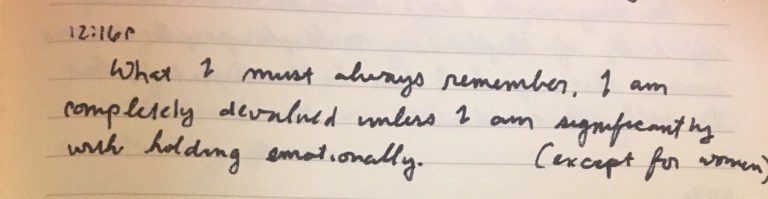 12:16P
What I must always remember, I am
completely devalued unless I am significantly
with holding emotionally. (except for women)